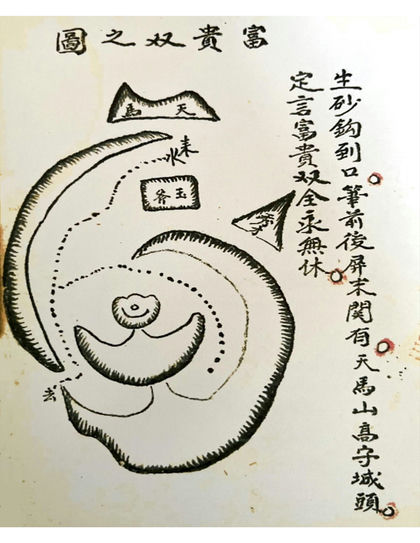 富貴双之圖
生砂鈎到口筆前後屏末関有天馬山高守城頭
定言富貴双全永無休
天馬
来水
玉
去